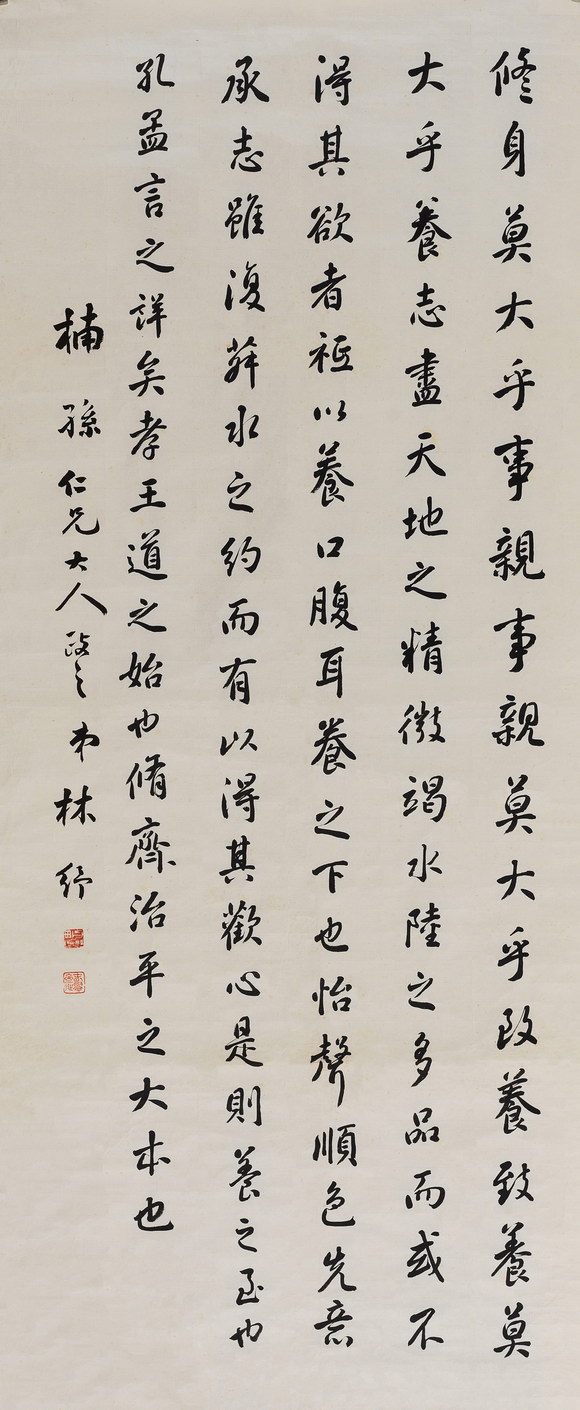 修身莫大乎事親事親莫大乎致養致養莫
大乎養志盡天地之精微竭水陸之多品而或不
得其歡者祗以養口腹耳養之下也怡聲順色先意
承志雖復菽水之約而有以得其歡心是則養之至也
孔孟言之詳矣孝王道之始也脩齊治平之大本也
楠孫仁兄大人政之弟林紓